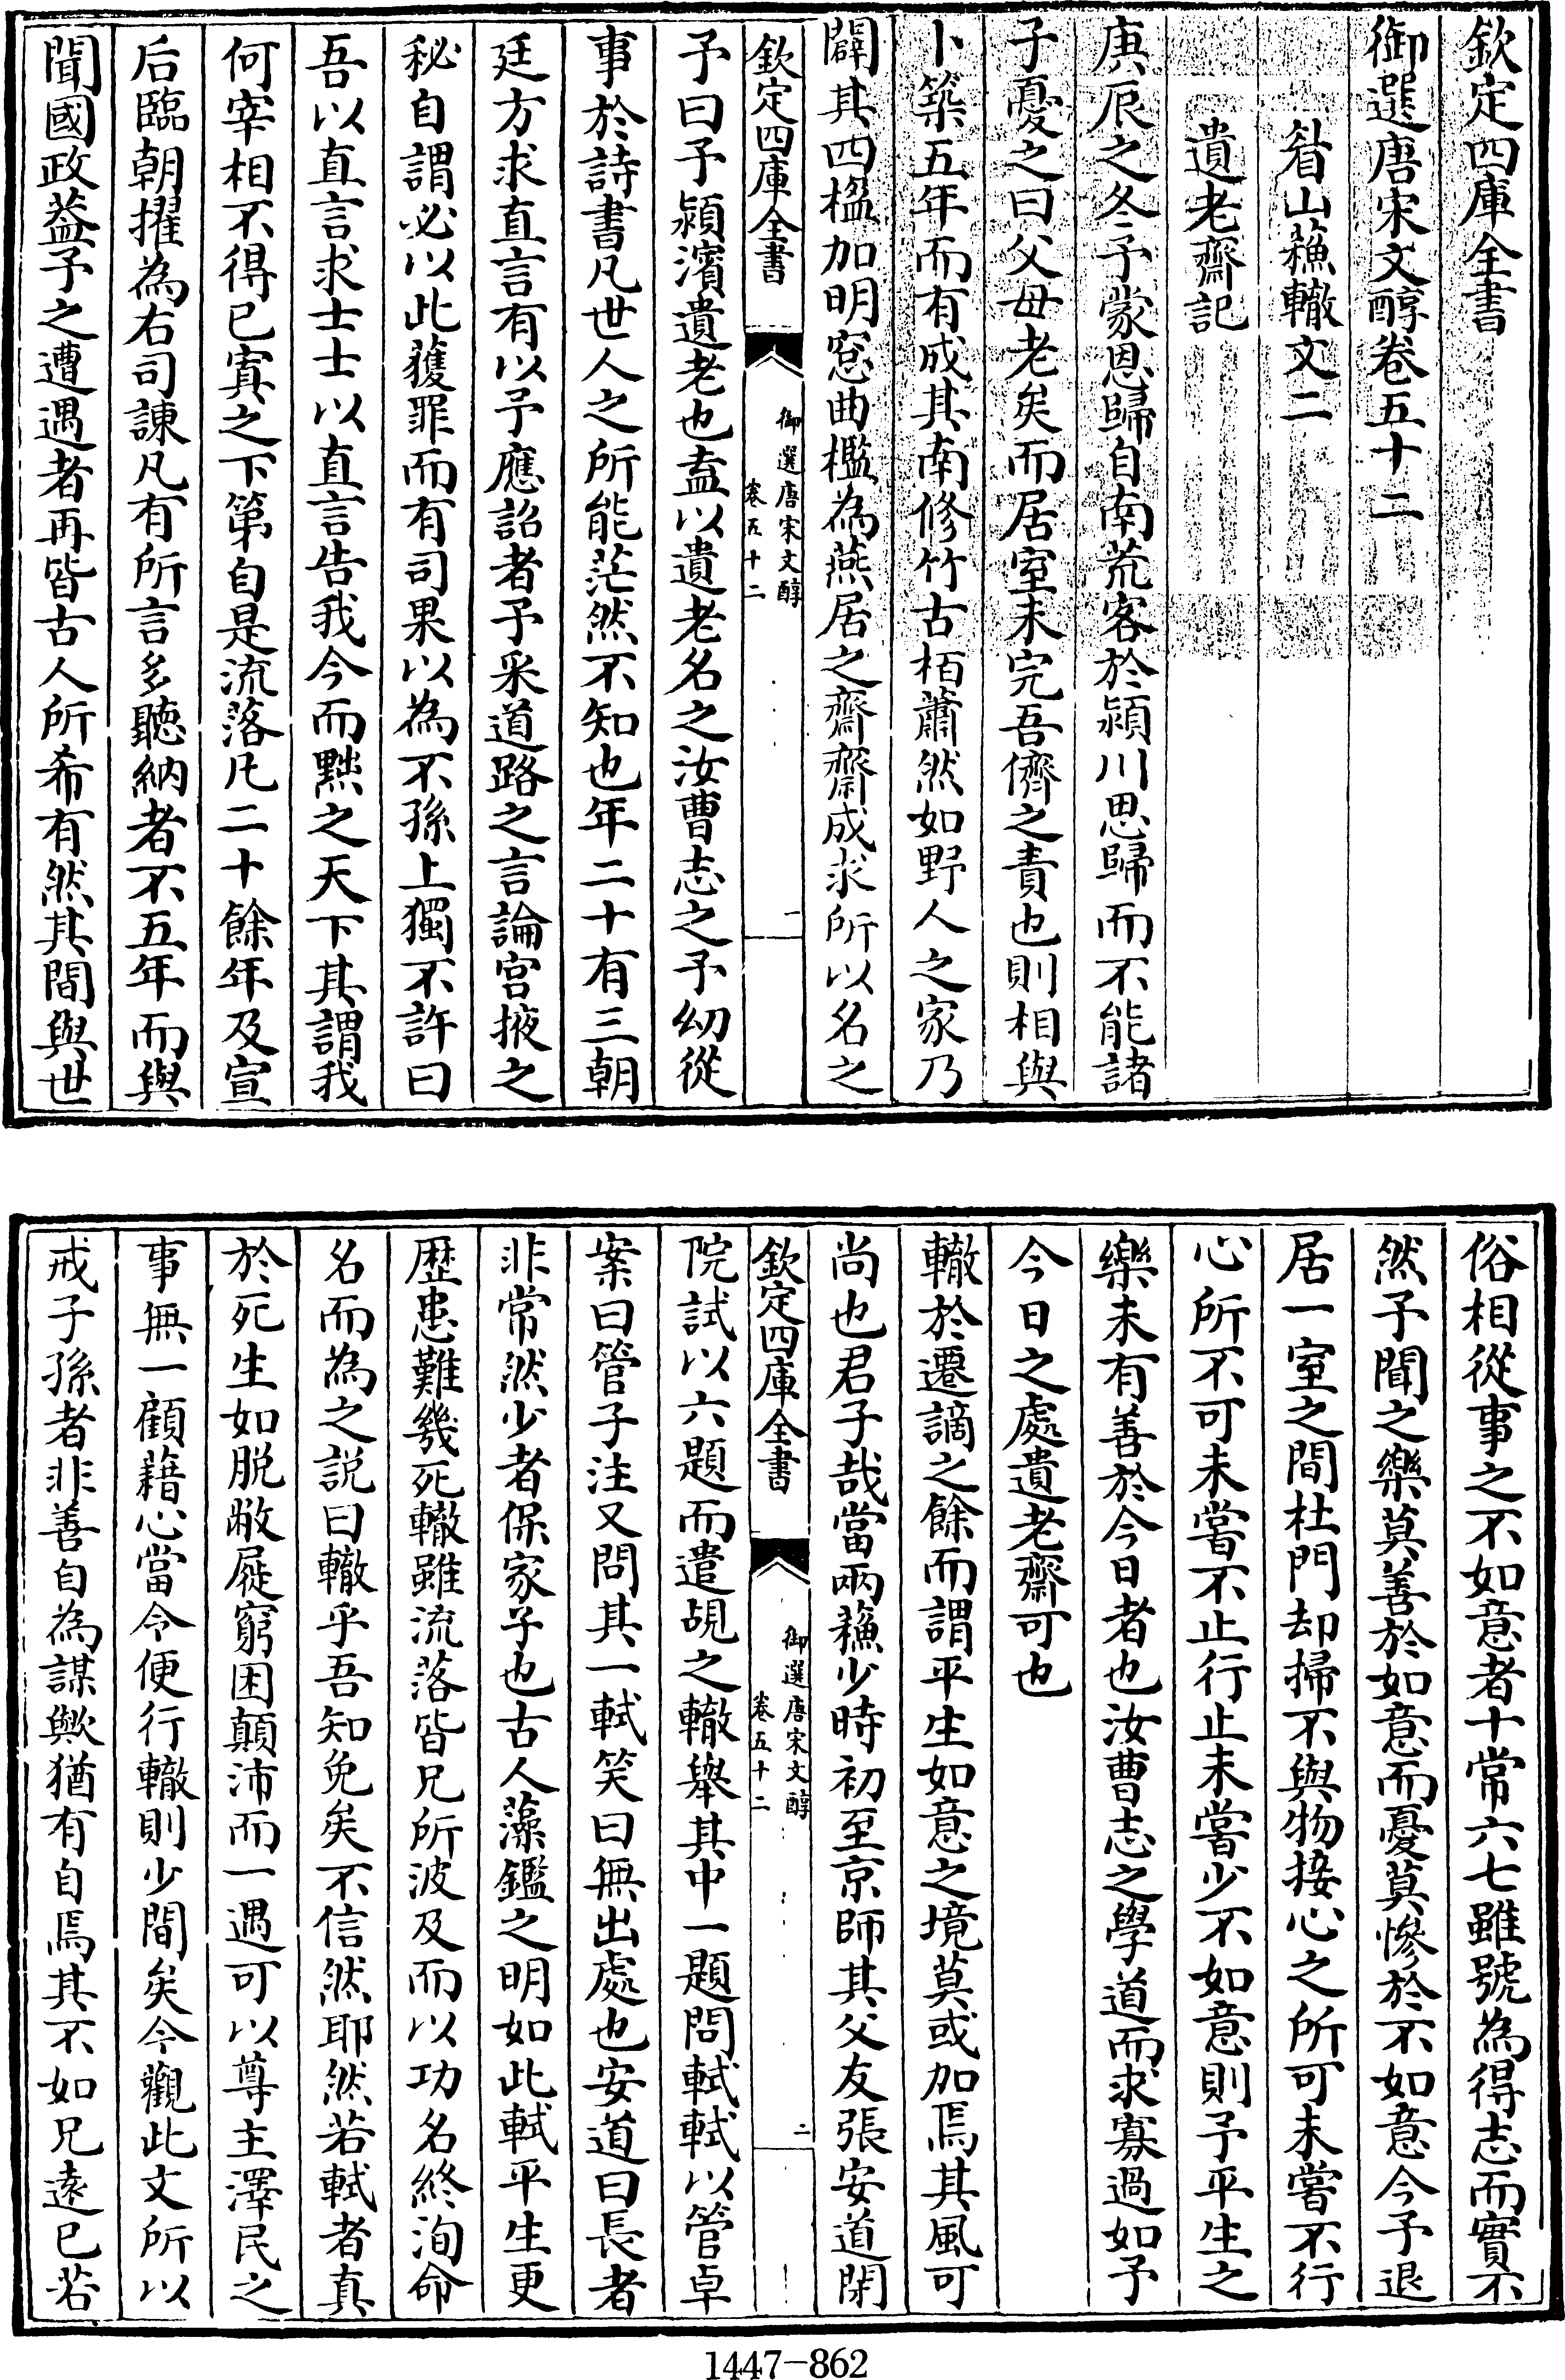 欽定四庫全書
御選唐宋文醇卷五十二
眉山蘓轍文二
遺老齋記
庚辰之冬予蒙恩歸自南荒客於潁川思歸而不能諸
子憂之曰父母老矣而居室未完吾儕之責也則相與
卜築五年而有成其南修竹古栢蕭然如野人之家乃
闢其四楹加明窓曲檻為燕居之齋齋成求所以名之
欽定四庫全書
御選唐宋文醇
卷五十二
一
予曰予潁濱遺老也盍以遺老名之汝曹志之予幼從
事於詩書凡世人之所能茫然不知也年二十有三朝
廷方求直言有以予應詔者予采道路之言論宫掖之
秘自謂必以此獲罪而有司果以為不孫上獨不許曰
吾以直言求士士以直言告我今而黜之天下其謂我
何宰相不得已寘之下第自是流落凡二十餘年及宣
后臨朝擢為右司諫凡有所言多聽納者不五年而與
聞國政葢予之遭遇者再皆古人所希有然其間與世
俗相從事之不如意者十常六七雖號為得志而實不
然予聞之樂莫善於如意而憂莫慘於不如意今予退
居一室之間杜門却掃不與物接心之所可未嘗不行
心所不可未嘗不止行止未嘗少不如意則予平生之
樂未有善於今日者也汝曹志之學道而求寡過如予
今日之處遺老齋可也
轍於遷謫之餘而謂平生如意之境莫或加焉其風可
尚也君子哉當兩蘓少時初至京師其父友張安道閉
欽定四庫全書
御選唐宋文醇
卷五十二
二
院試以六題而遣覘之轍舉其中一題問軾軾以管卓
案曰管子注又問其一軾笑曰無出處也安道曰長者
非常然少者保家子也古人藻鑑之明如此軾平生更
歴患難幾死轍雖流落皆兄所波及而以功名終洵命
名而為之説曰轍乎吾知免矣不信然耶然若軾者真
於死生如脱敝屣窮困顛沛而一遇可以尊主澤民之
事無一顧藉心當令便行轍則少間矣今觀此文所以
戒子孫者非善自為謀歟猶有自焉其不如兄遠已若
1447-862